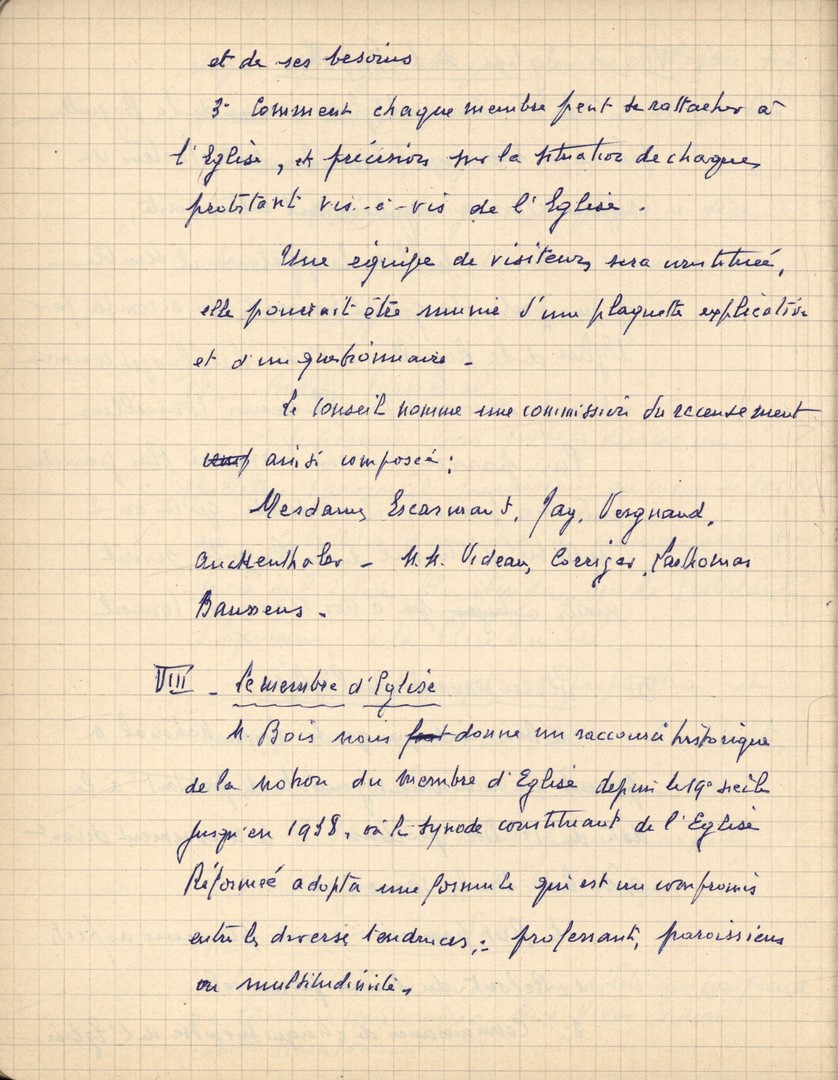 et de ses besoins
3- Comment chaque membre peut se rattacher à
l'Eglise, et précision sur la situation de chaque
protestant vis-à-vis de l'Eglise.
Une équipe de visiteurs sera constituée,
elle pourrait être munie d'une plaquette explicative
et d'un questionnaire -
Le Conseil nomme une commission du recensement
ainsi composée :
Mesdames Escarmant, Jay, Vergnaud,
Auckenthaler - M.M. Videau, Corriger,
Baussens -
VIII - Le membre d'Eglise
M. Bois nous donne un raccourci historique
de la notion du membre d'Eglise depuis le 19e siècle
jusqu'en 1938, où le Synode constituant de l'Eglise
Réformée adopta une formule qui est un compromis
entre les diverses tendances : professants, paroissiens
ou multitudinistes,